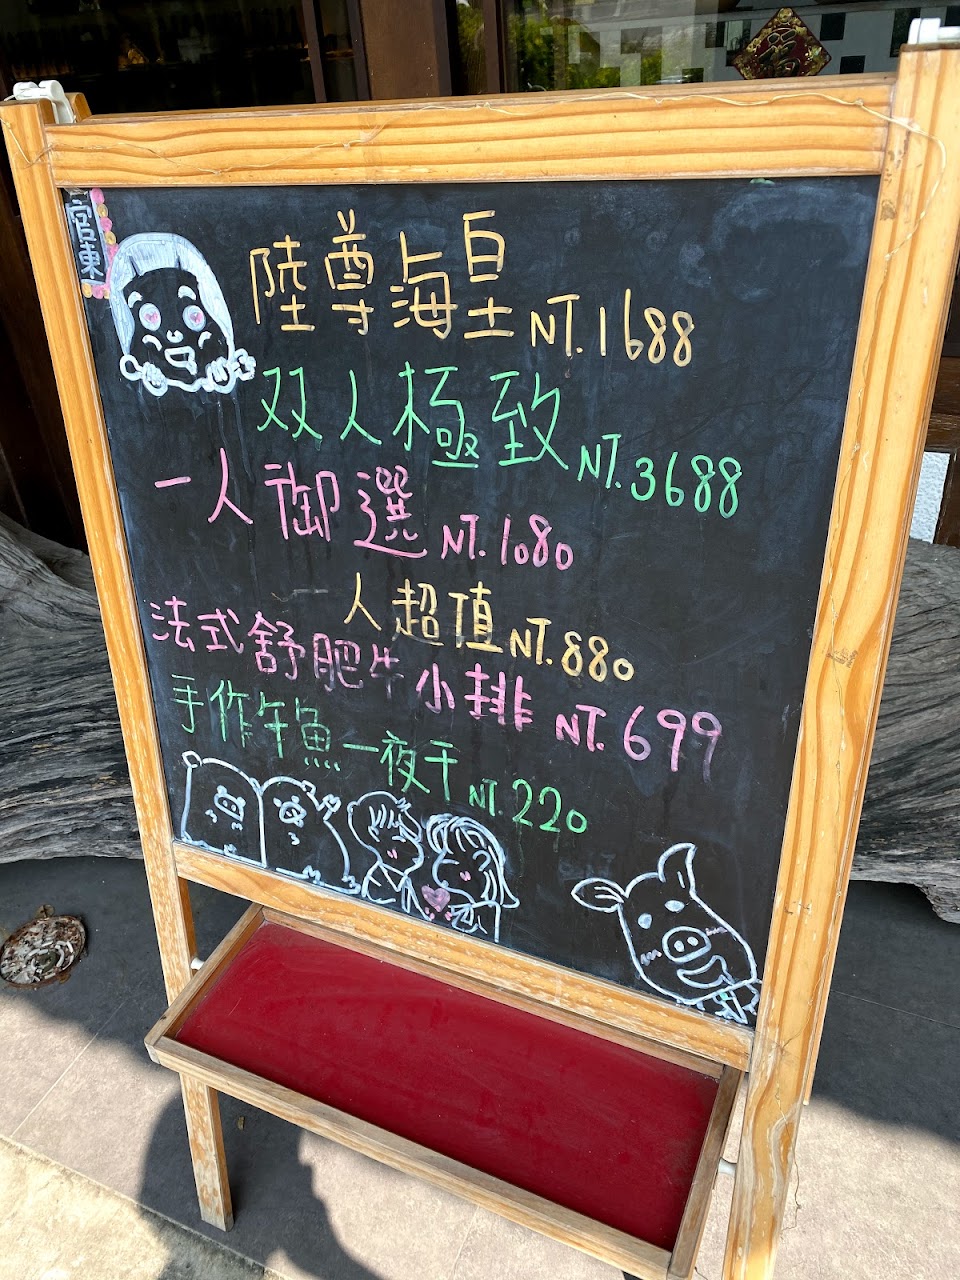 宮東
陸尊海皇 NT.1688
双人極致 NT.3688
一人御選 NT.1080
一人超值 NT.880
法式舒肥牛小排 NT.699
手作午魚一夜干 NT.220